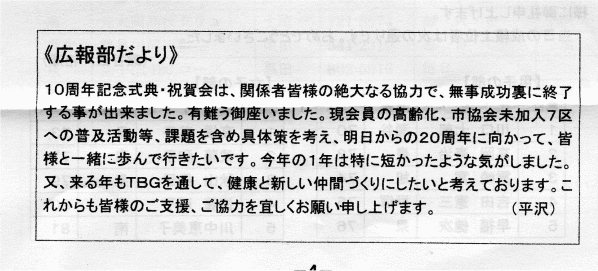 《広報部だより》
10周年記念式典・祝賀会は、関係者皆様の絶大なる協力で、無事成功裏に終了
する事が出来ました。有難う御座いました。現会員の高齢化、市協会未加入7区
への普及活動等、課題を含め具体策を考え、明日からの20周年に向かって、皆
様と一緒に歩んで行きたいです。今年の1年は特に短かったような気がしました。
又、来る年もTBGを通して、健康と新しい仲間づくりにしたいと考えております。こ
れからも皆様のご支援、ご協力を宜しくお願い申し上げます。 (平沢)